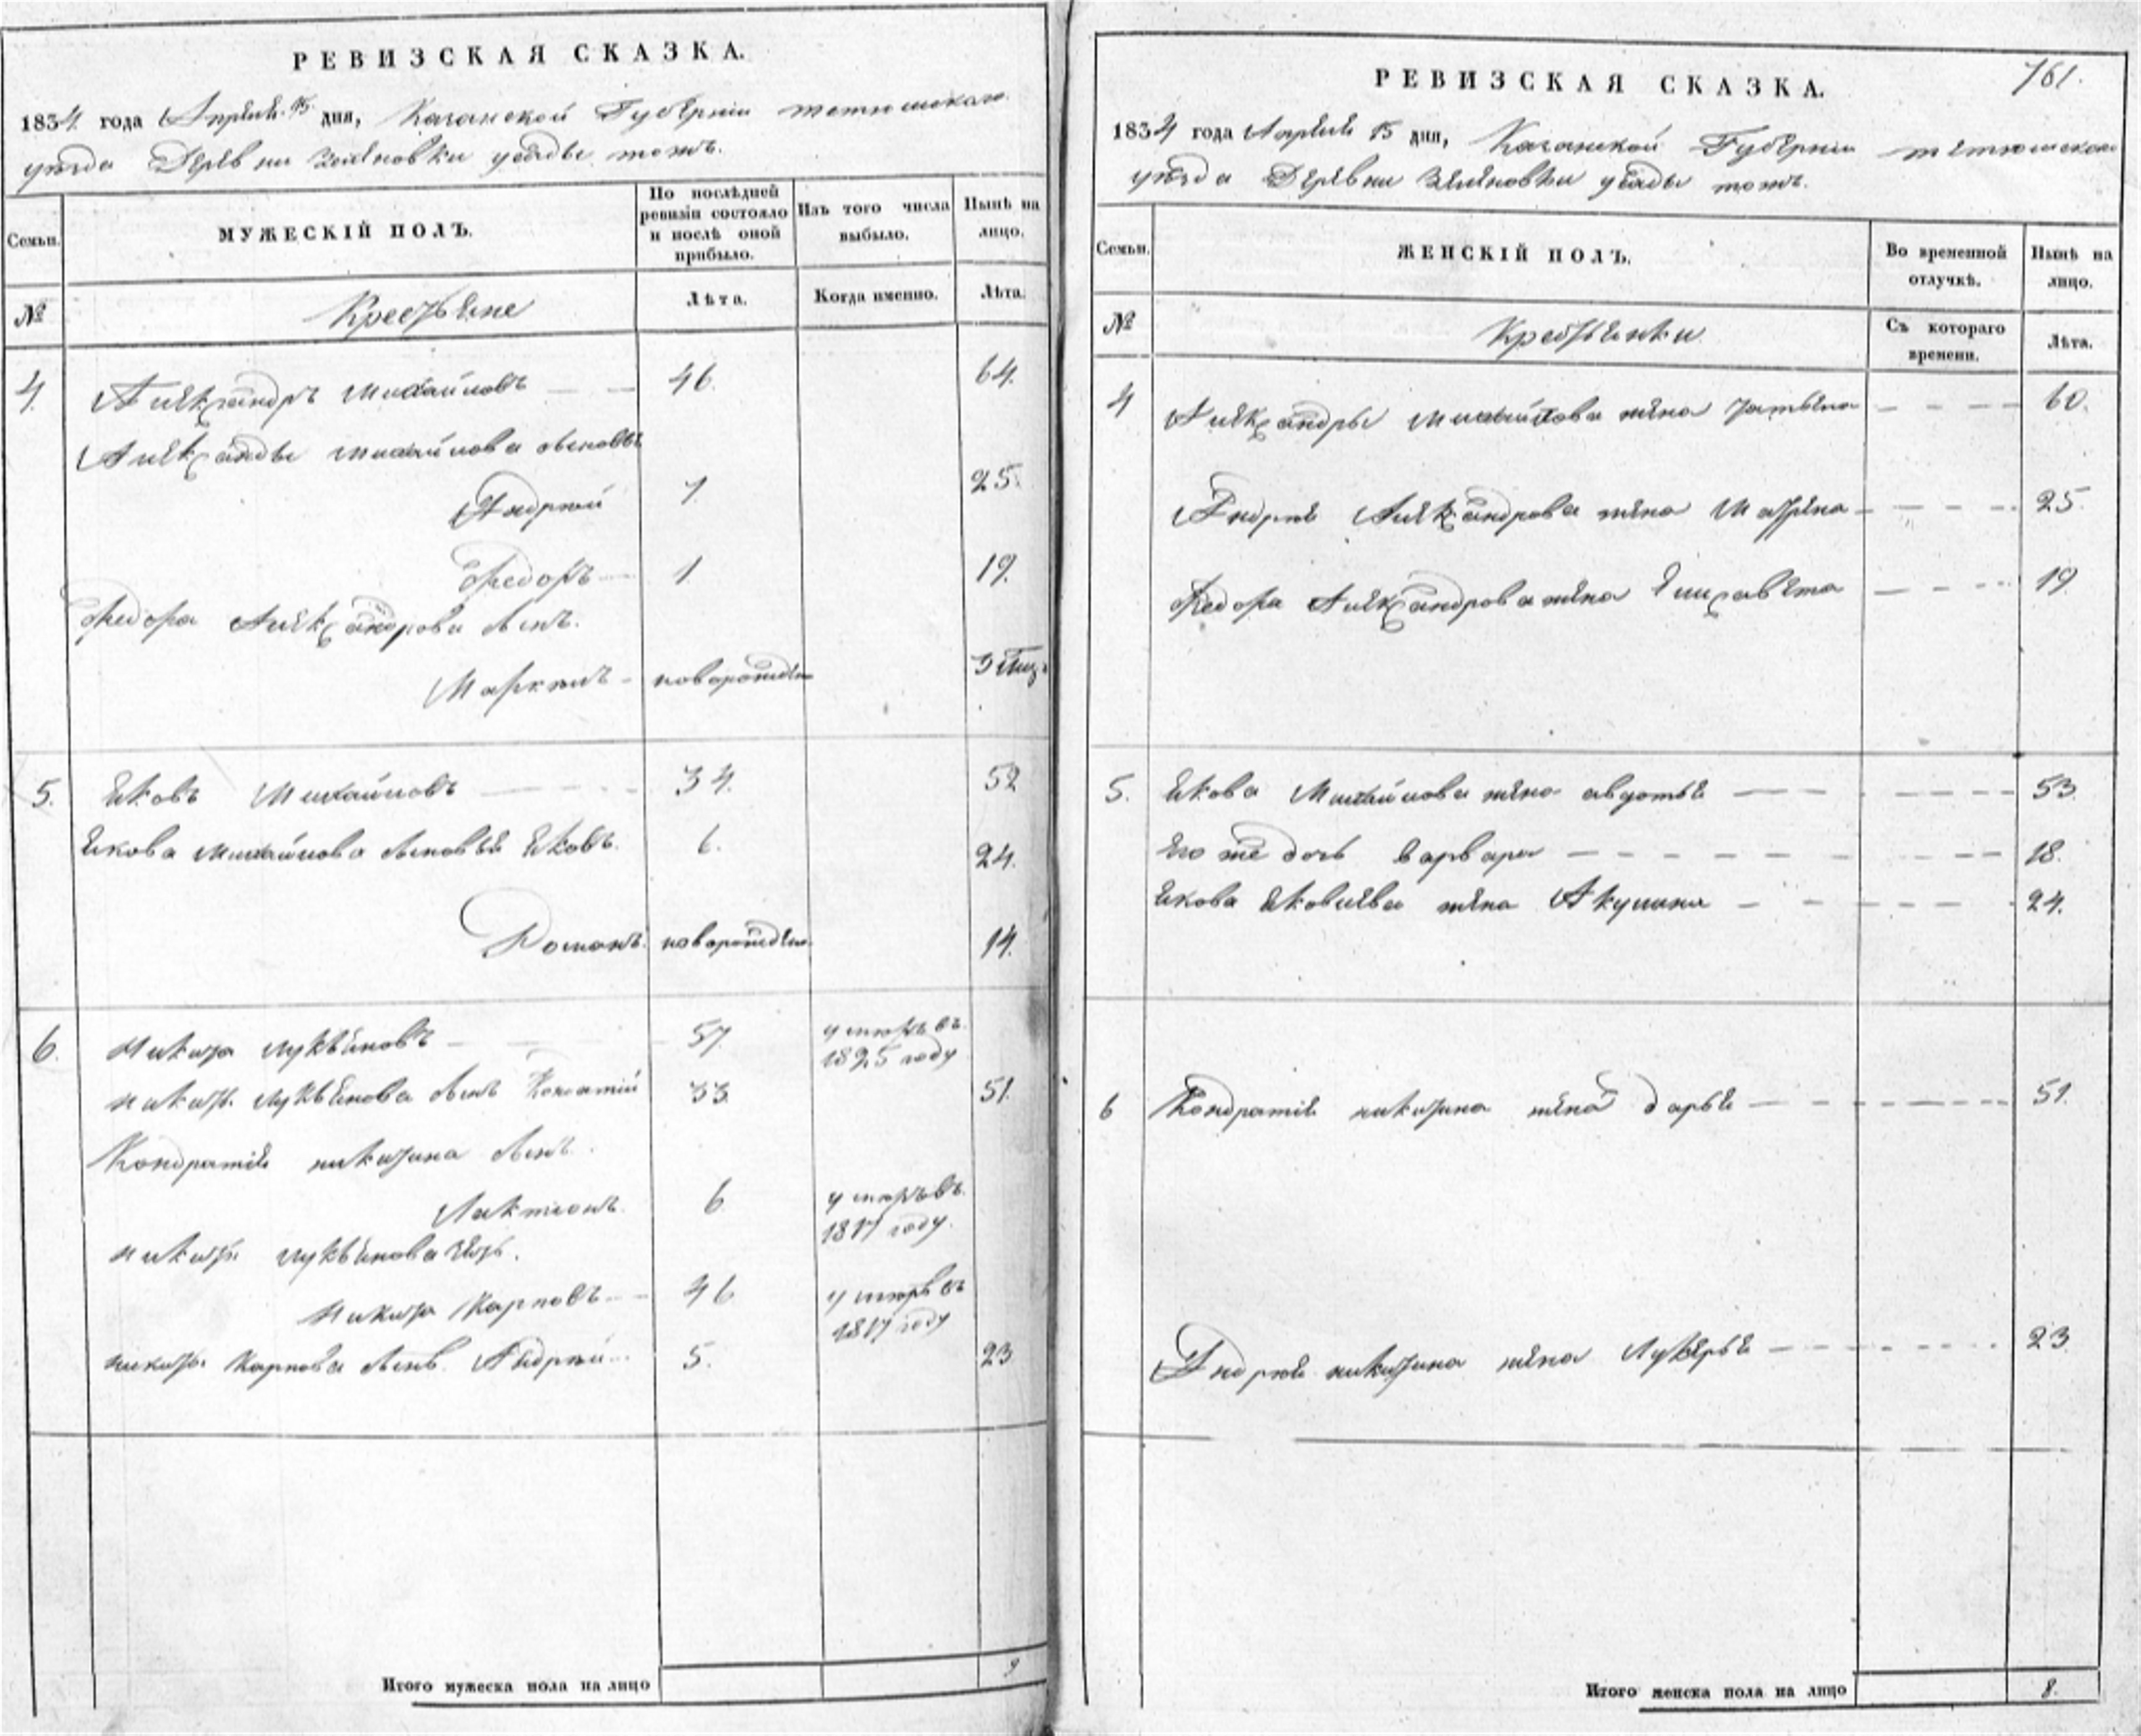 РЕВИЗСКАЯ СКАЗКА.
1834 года Апреля 15 дня, Казанской Губернии тетюшскаго
уезда Деревни Зеленовки усады тожъ.
Семьи. МУЖЕСКІЙ ПОЛЪ. По послѣдней ревизіи состояло и послѣ оной прибыло. Изъ того числа выбыло. Нынѣ на лицо.
№ Крестьяне Лѣта. Когда именно. Лѣта.
4. Александръ Михайловъ 46. 64.
Александры Михайлова сыновья
Андрей 7. 25.
Федоръ 1. 19.
Федора Александрова сынъ.
новорожден 3
5. Яковъ Михайловъ 34. 52
Якова Михайлова сыновья Яковъ. 6. 24.
Романъ. новорожден. 14.
6. Никита Лукьяновъ 57. умеръ въ 1825 году
Никиты Лукьянова сынъ 33. 51.
Кондратія никитина сынъ.
Лактионъ. 6 умеръ въ 1817 году.
Никиты Лукьянова зять.
Никита Карповъ 46 умеръ въ 1817 году
никиты Карпова сынъ. Андрей 5. 23
Итого мужеска пола на лицо 9
РЕВИЗСКАЯ СКАЗКА. 761.
1834 года Апреля 15 дня, Казанской Губернии тетюшскаго
уезда Деревни Зеленовки усады тожъ.
Семьи. ЖЕНСКІЙ ПОЛЪ. Во временной отлучкѣ. Нынѣ на лицо.
№ Крестьянки Съ котораго времени. Лѣта.
4 Александры Михайлова жена Татьяна 60.
Андрея Александрова жена Матрена 25.
Федора Александрова жена Елизавета 19
5. Якова Михайлова жена авдотья 53.
Его же дочь варвара 18.
Якова Яковлева жена Акулина 24.
6 Кондратія никитина жена дарья 51.
Андрея никитина жена Лукерья 23
Итого женска пола на лицо 8.